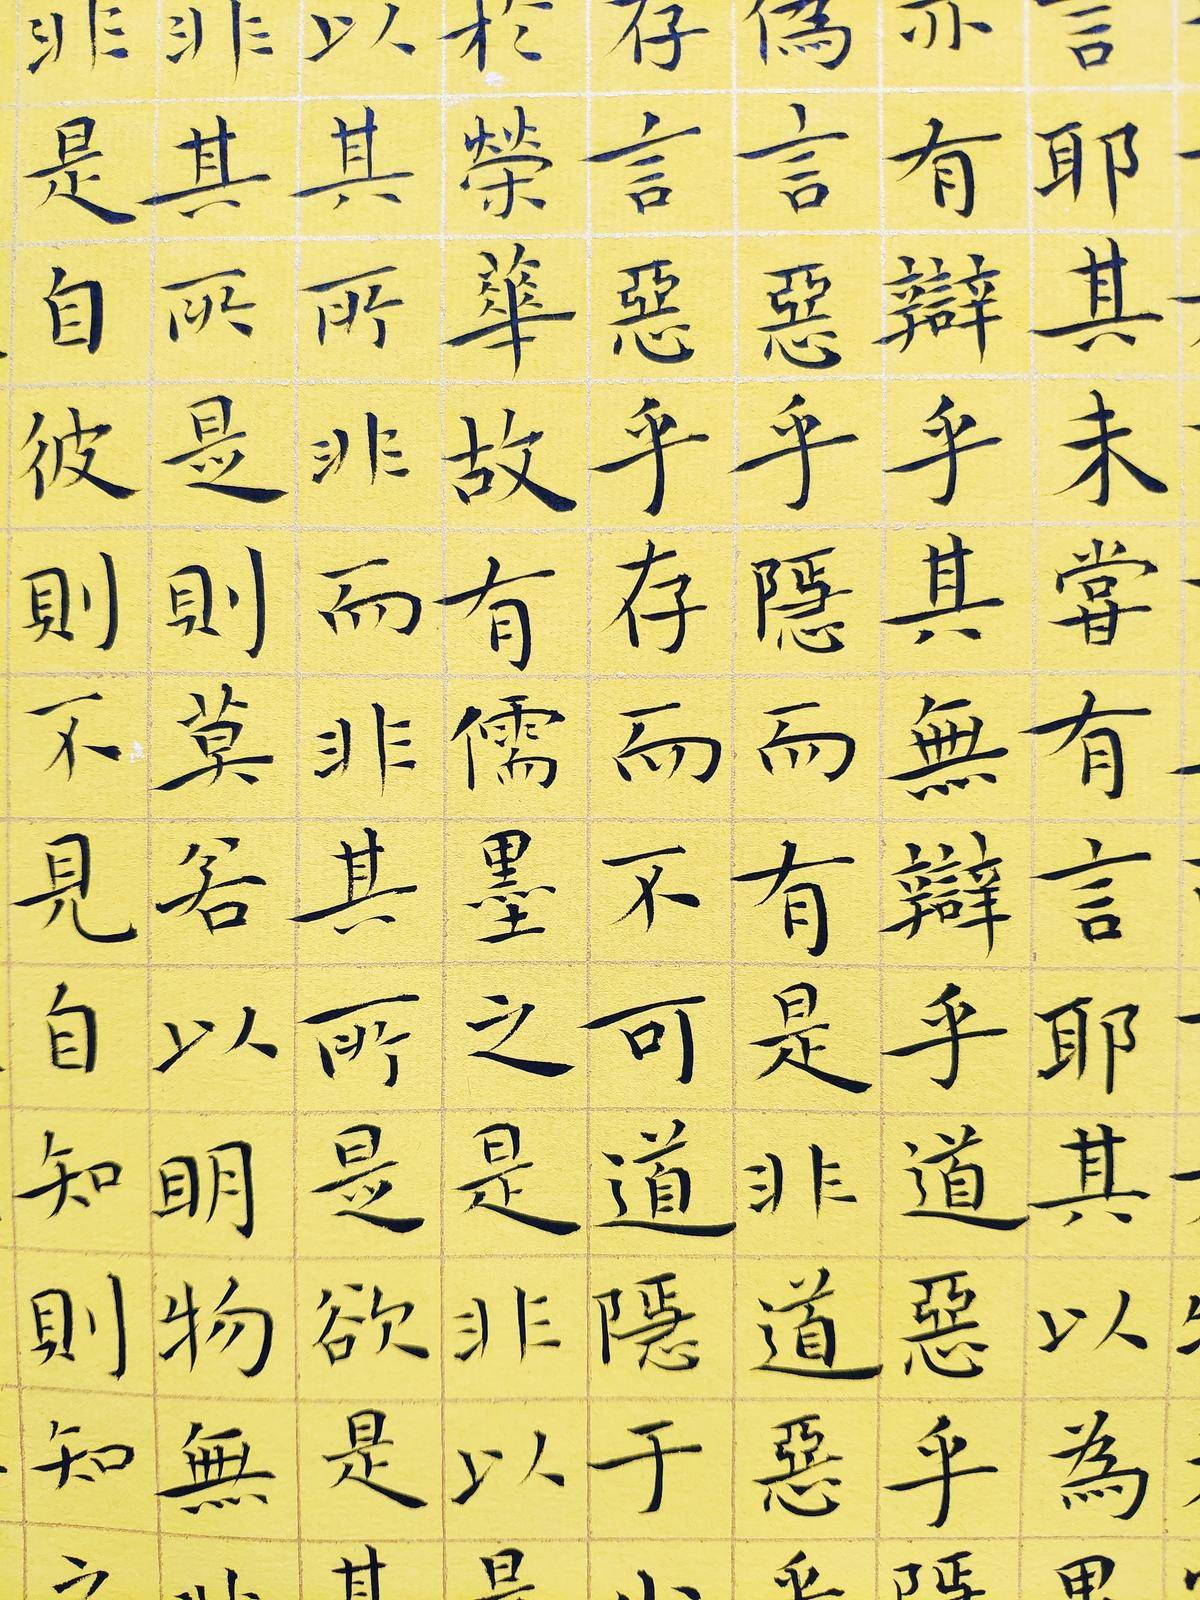 言耶其未嘗有言耶其以為異
亦有辯乎其無辯乎道惡乎隱
偽言惡乎隱而有是非道惡乎
存言惡乎存而不可道隱于小
於榮華故有儒墨之是非以是
以其所非而非其所是欲是其
非其所是則莫若以明物無非
非是自彼則不見自知則知之